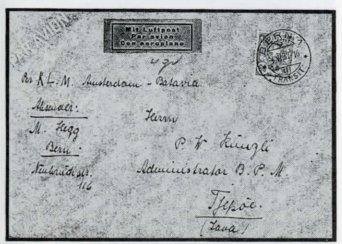 PAR AVION
Mit Luftpost
Par avion
Con aeroplano
4 gr
Per K.L.M. Amsterdam - Batavia
Absender:
M. Hegg
Bern
Neubrückstr.
116
Herrn
P. W. Künzli
Administrator B. P. M.
Tjepoe.
(Java)
BERN 1
TRANSIT